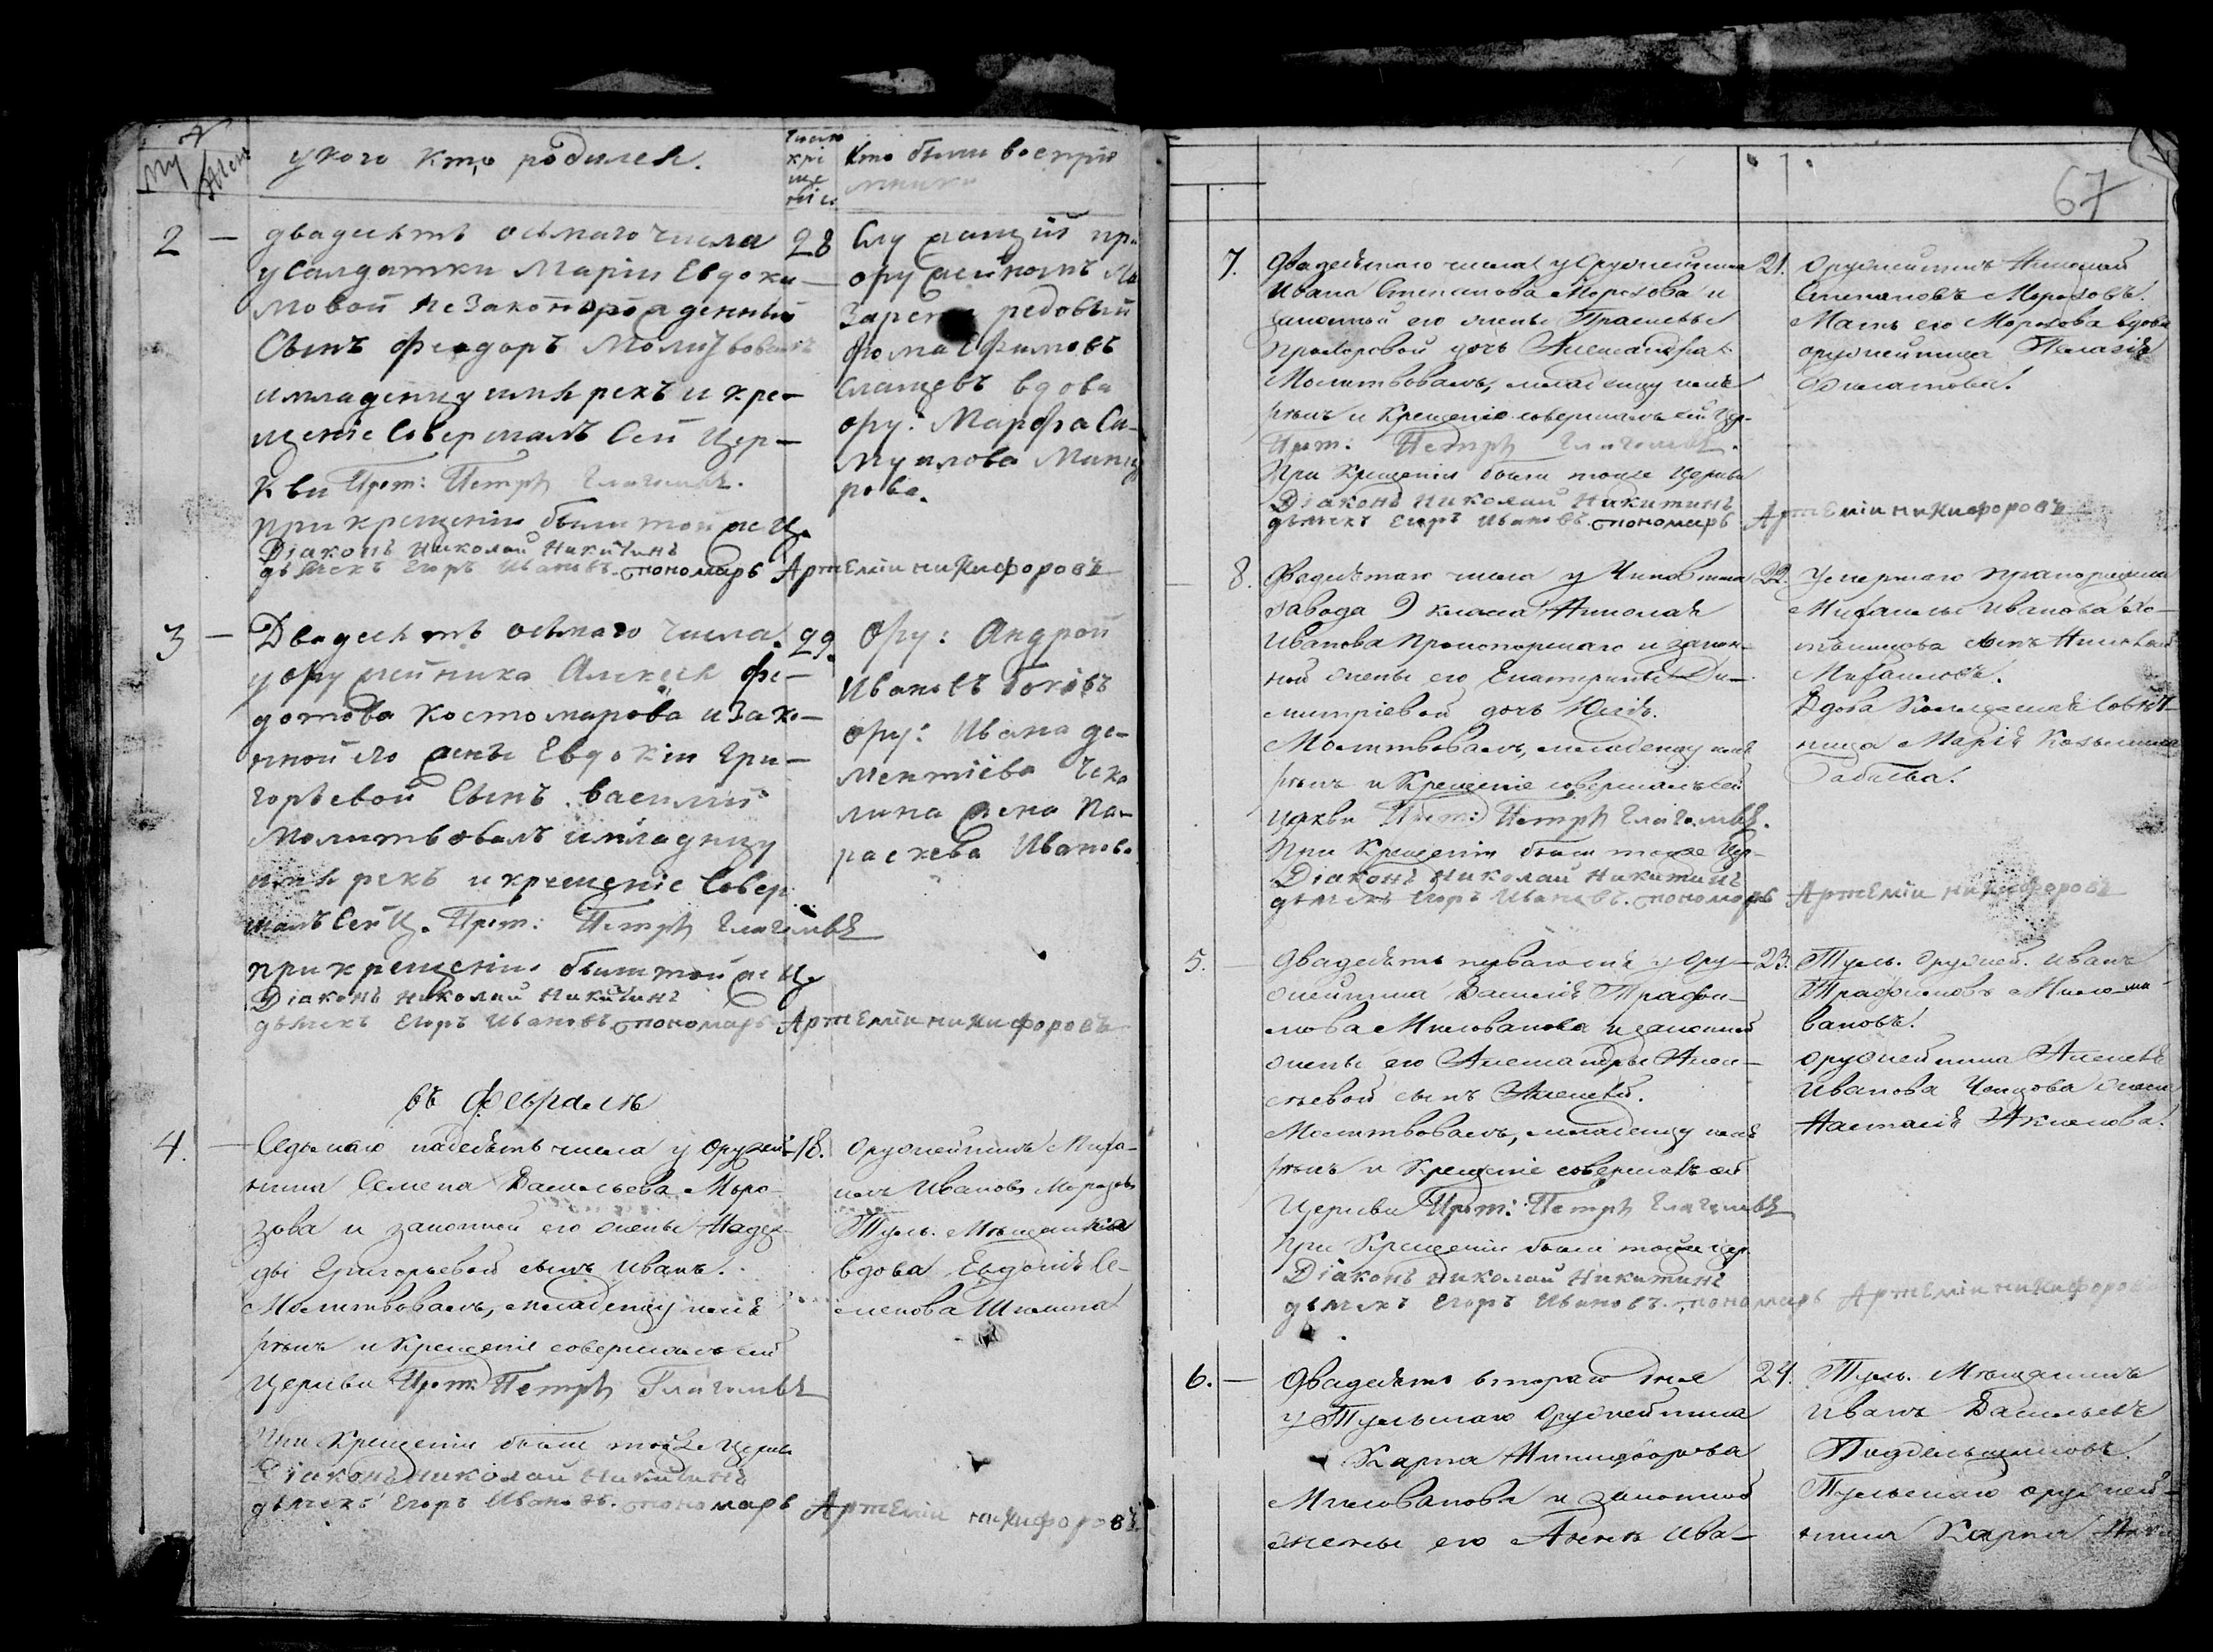 му жен
у кого кто родился.
число
кре
ще
нія
Кто были воспріе
мники
2 — двадесять осьмаго числа
у Салдатки Маріи Евдоки—
мовой незаконорожденный
Сынъ Феодоръ Молитвовалъ
и младенцу имя рекъ и кре—
щеніе Совершалъ Сей Цер—
кви Прот: Петръ Глаголевъ.
при крещеніи были той же Ц.
Діаконъ Николай Никитинъ
дьячекъ Егоръ Ивановъ. пономарь Артемій Никифоровъ
28
Служащій пр.
оружейномъ
редовый
фома Ефимовъ
Слащевъ вдова
ору: Марфа Са—
муилова
рова.
3 — Двадесять осьмаго числа
у оружейника Алексея Фе—
дотова Костомарова и зако—
нной его жены Евдокіи Гри—
горьевой Сынъ Василий
Молитвовалъ и младенцу
имя рекъ и крещеніе Совер
шалъ Сей Ц. Прот: Петръ Глаголевъ
при крещеніи были той же Ц.
Діаконъ Николай Никитинъ
дьячекъ Егоръ Ивановъ. пономарь Артемій Никифоровъ
29.
Ору: Андрей
Ивановъ Боковъ
ору: Ивана де—
ментіева Чека
лина жена Па—
раскева Иванова
въ Февралѣ
4. — Седьмаго надесять числа у Оружей—
ника Семена Васильева Моро—
зова и законной его жены Надеж
ды Григорьевой сынъ Иванъ.
Молитвовалъ, младенцу имя
рекъ и крещеніе совершалъ сей
Церкви Прот: Петръ Глаголевъ
При Крещеніи были тойже Церкви
Діаконъ Николай Никитинъ
дьячекъ Егоръ Ивановъ. пономарь Артемій Никифоровъ.
18.
Оружейникъ Миха—
илъ Ивановъ Морозовъ
Туль. Мѣщанина
вдова Евдокія Се—
менова Шилина
67
7. Двадесятаго числа у Оружейника
Ивана Степанова Морозова и
законной его жены Прасковьи
Прохоровой дочь Александра.
Молитвовалъ, младенцу имя
рекъ и крещеніе совершалъ сей Цер.
Прот: Петръ Глаголевъ.
При Крещеніи были тойже Церкви
Діаконъ Николай Никитинъ
дьячекъ Егоръ Ивановъ. пономарь Артемій Никифоровъ
21.
Оружейникъ Николай
Степановъ Морозовъ.
Мать его Морозова вдова
оружейница Пелагія
Филатова.
8. Двадесятаго числа у Чиновника
завода 9 класса Николая
Иванова и закон—
ной жены его Екатерины Ди—
митріевой дочь Юлія.
Молитвовалъ, младенцу имя
рекъ и Крещеніе совершалъ сей
Церкви Прот: Петръ Глаголевъ.
При Крещеніи были тойже Цер—
Діаконъ Николай Никитинъ
дьячекъ Егоръ Ивановъ. пономарь Артемій Никифоровъ
22.
Умершаго прапорщика
Михаилы Иванова
сынъ Николай
Михаиловъ.
Вдова Коллежская Совѣт—
ница Марія Козьмина
Бабаева.
5. — Двадесять перваго дня у Ору—
жейника Василія Трафи—
мова Милованова и законной
жены его Александры Алек—
сѣевой сынъ Алексѣй.
Молитвовалъ, младенцу имя
рекъ и Крещеніе совершалъ сей
Церкви Прот: Петръ Глаголевъ
При Крещеніи были тойже цер.
Діаконъ Николай Никитинъ
дьячекъ Егоръ Ивановъ. пономарь Артемій Никифоровъ
23.
Туль. Оружей. Иванъ
Трафимовъ Мило—
вановъ.
оружейника Алексѣя
Иванова жена
Наталія Акимова.
6. — Двадесять втораго дня
у Тульскаго Оружейника
Карпа Никифорова
Милованова и законной
жены его Анны Ива—
24.
Туль. Мѣщанинъ
Иванъ Васильевъ
Подельщиковъ.
Тульскаго оружей—
ника Карпа